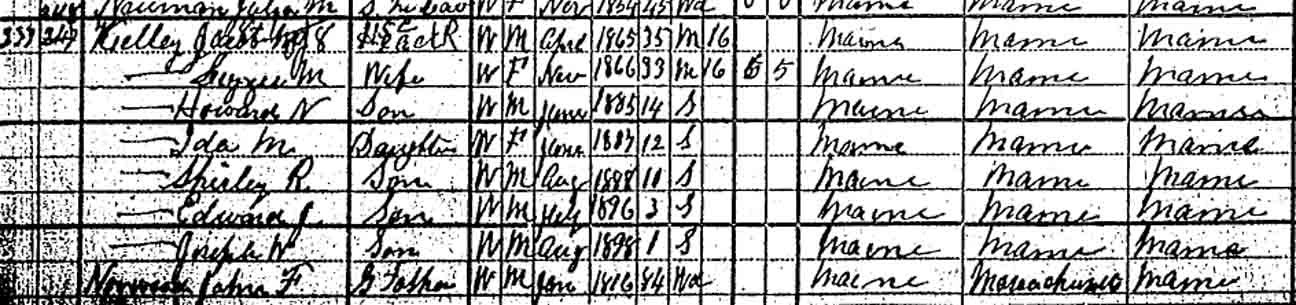 S in Law W F Nov 1854 45 Wd 0 0 Maine Maine Maine
339 347 Kelley Jacob Head R W M April 1865 35 M 16 Maine Maine Maine
— M Wife W F Nov 1866 33 M 16 5 5 Maine Maine Maine
— Howard N Son W M June 1885 14 S Maine Maine Maine
— Ida M. Daughter W F June 1887 12 S Maine Maine Maine
— Shirley R. Son W M Aug 1888 11 S Maine Maine Maine
— Edward J. Son W M 1896 3 S Maine Maine Maine
— Joseph W Son W M Aug 1898 1 S Maine Maine Maine
John F G Father W M Jan 1816 84 Wd Maine Massachusetts Maine